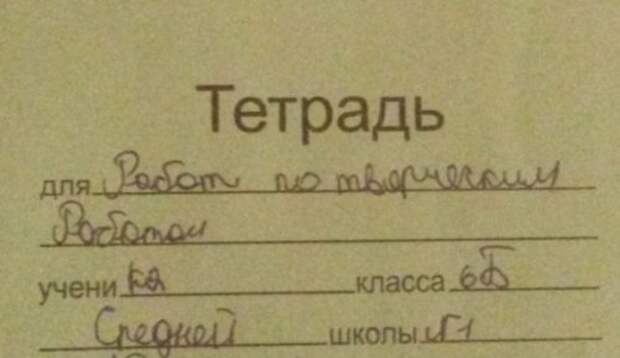 Тетрадь
для Работ по творческим
Работам
ученика класса 6Б
Средней школы №1